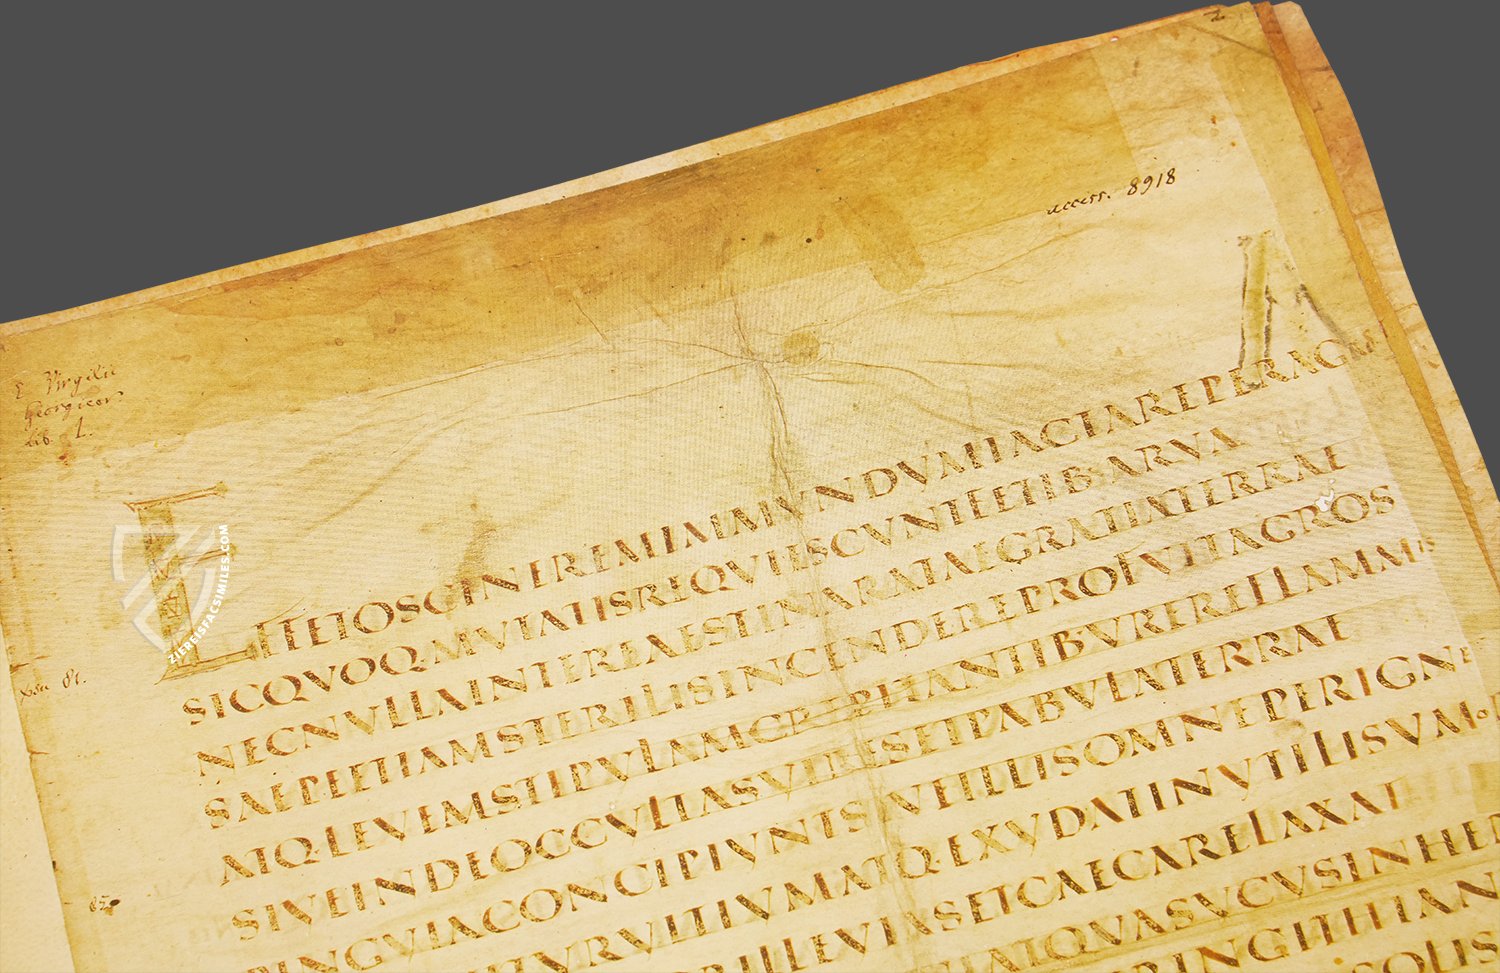 2
access. 8918
E Virgilii
Georgicor
Lib. 1.
EFFETOSCINEREMIMMVNDVMIACTAREPERAGR
SICQVOQMVTATISREQVIESCVNTFETIB·ARVA
NECNVLLAINTEREAESTINARATAEGRATIATERRAE
SAEPEETIAMSTERILISINCENDEREPROFVITAGROS
ATQLEVEMSTIPVLAMCREPITANTIBVREREFLAMMIS
SIVEINDEOCCVLTASVIRESETPABVLATERRAE
PINGVIACONCIPIVNTSIVEILLISOMNEPERIGNE
TVRVITIVMATQ·EXVDATINVTILISVMO
RILLEVIASETCAECARELAXAT
IATQVASVCVSINHER
RINGITHIAN
SOLIS
81.
85
ZIEREISFACSIMILES.COM